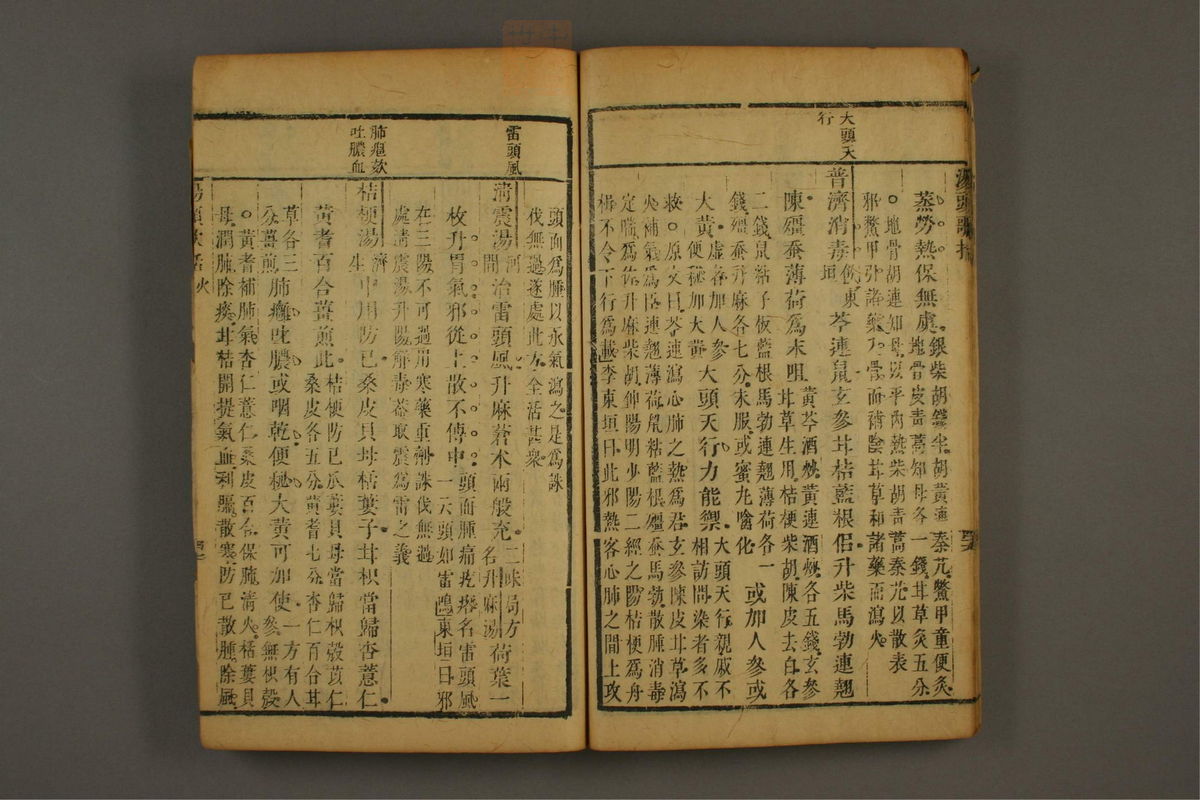 湯頭歌括
大頭天
行
蒸勞熱保無虞。
銀柴胡錢半。胡黃連
地骨皮青蒿知母各
秦艽鱉甲童便炙
一錢。甘草炙五分
○地骨胡連知母以平內熱柴胡青蒿秦艽以散表
邪鱉甲引諸藥入骨而補陰甘草和諸藥而瀉火
普濟消毒飲東垣芩連鼠玄參甘桔藍根侶升柴馬勃連翹
陳殭蠶薄荷爲末咀
黃芩酒炒。黃連酒炒。各五錢。玄參
甘草生用。桔梗柴胡。陳皮去白各
二錢鼠粘子板藍根馬勃連翹薄荷各一
錢殭蠶升麻各七分。末服。或蜜丸噙化
或加人參或
大黃
虛者加人參
便秘加大黃
大頭天行力能禦
大頭天行親戚不
相訪問染者多不
救○原文曰芩連瀉心肺之熱爲君玄參陳皮甘草瀉
火補氣爲臣連翹薄荷鼠粘藍根殭蠶馬勃散腫消毒
定喘爲佐升麻柴胡伸陽明少陽二經之陽桔梗爲舟
楫不令下行爲載李東垣曰此邪熱客心肺之間上攻
雷頭風
肺癰欬
吐膿血
頭面爲腫以承氣瀉之是爲誅
伐無過遂處此方全活甚衆
清震湯河間治雷頭風升麻蒼朮兩般充
二味局方
名升麻湯
荷葉一
枚升胃氣邪從上散不傳中
頭面腫痛疙瘩名雷頭風
一云頭如雷鳴東垣曰邪
在三陽不可過用寒藥重劑誅伐無過
處清震湯升陽解毒蓋取震爲雷之義
桔梗湯濟生中用防已桑皮貝母栝蔞子甘枳當歸杏薏仁
黃耆百合薑煎此。
桔梗防已瓜蔞貝母當歸枳殼苡仁
桑皮各五分黃耆七分杏仁百合甘
草各三
分薑煎
肺癰吐膿或咽乾便秘大黃可加使
一方有人
參無枳殼
○黃耆補肺氣杏仁薏仁桑皮百合保肺清火栝蔞貝
母潤肺除痰甘桔開提氣血利膈散寒防已散腫除風